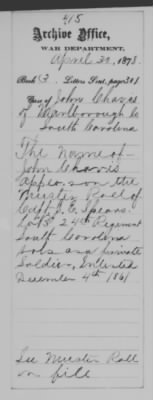 415
Archive Office,
WAR DEPARTMENT,
April 30, 1878.
Book 3. Letters Sent, page 361
Case of John Chaves
of Marlborough Co
South Carolina
The Name of
John Chavis
Appears on the
Muster Roll of
Capt. J. E. Spears
Co 24th Regiment
South Carolina
Vols as a private
Soldier, Enlisted
December 4th 1861
See Muster Roll
on file